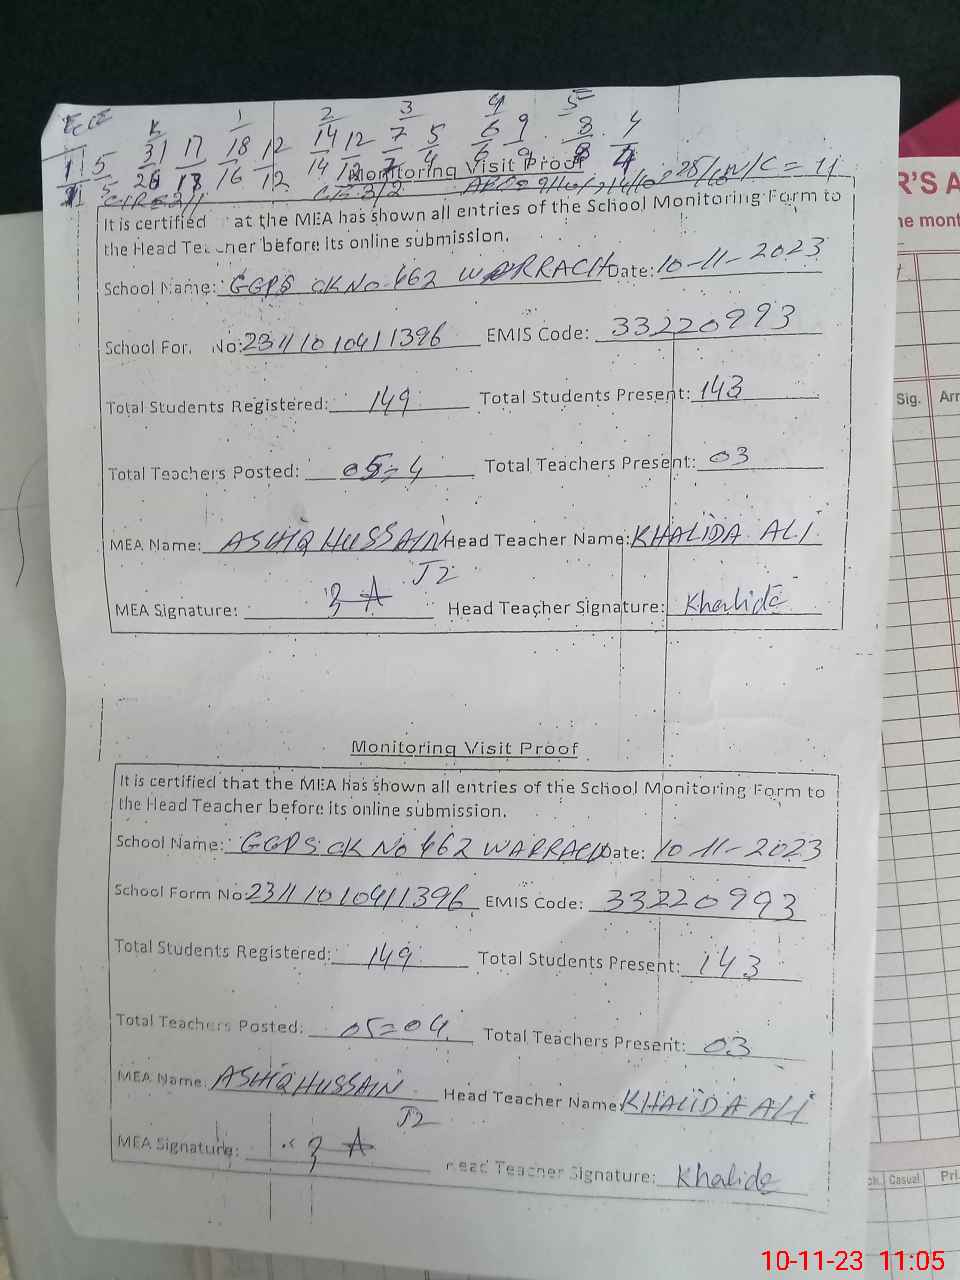 ECE K 1 2 3 4 5
11 5 31 17 18 12 14 12 7 5 6 9 8 4
11 5 26 17 16 12 14 12 7 4 6 9 8 4
Monitoring Visit Proof
It is certified at the MEA has shown all entries of the School Monitoring Form to
the Head Teacher before its online submission.
School Name: GGPS CK No. 462 WARRACH Date: 10-11-2023
School For. No: 23111010411396 EMIS Code: 33220993
Total Students Registered: 149 Total Students Present: 143
Total Teachers Posted: 05=4 Total Teachers Present: 03
MEA Name: ASHIQ HUSSAIN Head Teacher Name: KHALIDA ALI
J2
MEA Signature: Head Teacher Signature: Khalida
Monitoring Visit Proof
It is certified that the MEA has shown all entries of the School Monitoring Form to
the Head Teacher before its online submission.
School Name: GGPS CK No 462 WARRACH Date: 10-11-2023
School Form No: 23111010411396 EMIS Code: 33220993
Total Students Registered: 149 Total Students Present: 143
Total Teachers Posted: 05=04 Total Teachers Present: 03
MEA Name: ASHIQ HUSSAIN Head Teacher Name: KHALIDA ALI
J2
MEA Signature: Head Teacher Signature: Khalida
R'S A
he mont
Sig. Arr
Casual Pri.
10-11-23 11:05